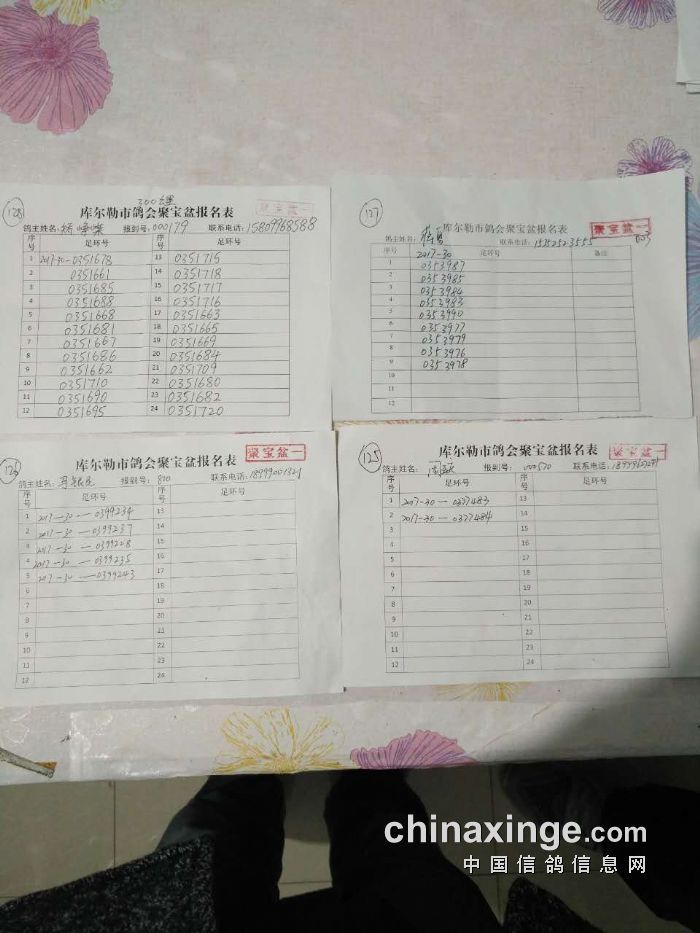 300元组
128
库尔勒市鸽会聚宝盆报名表
聚宝盆一
鸽主姓名: 报到号: 000179 联系电话: 15809968588
序号 足环号 序号 足环号
1 2017-30-0351678 13 0351715
2 0351661 14 0351718
3 0351685 15 0351717
4 0351688 16 0351716
5 0351668 17 0351663
6 0351681 18 0351665
7 0351667 19 0351669
8 0351686 20 0351684
9 0351662 21 0351709
10 0351710 22 0351680
11 0351690 23 0351682
12 0351695 24 0351720
127
库尔勒市鸽会聚宝盆报名表
聚宝盆一
鸽主姓名: 联系电话:
序号 足环号 备注
2017-30
1 0353987
2 0353985
3 0353984
4 0353983
5 0353990
6 0353977
7 0353979
8 0353976
9 0353978
10
11
12
126
库尔勒市鸽会聚宝盆报名表
聚宝盆一
鸽主姓名: 报到号: 810 联系电话:
序号 足环号 序号 足环号
1 2017-30-0399234 13
2 2017-30-0399237 14
3 2017-30-0399228 15
4 2017-30-0399235 16
5 2017-30-0399243 17
6 18
7 19
8 20
9 21
10 22
11 23
12 24
125
库尔勒市鸽会聚宝盆报名表
聚宝盆一
鸽主姓名: 报到号: 000570 联系电话:
序号 足环号 序号 足环号
1 2017-30-0377483 13
2 2017-30-0377484 14
3 15
4 16
5 17
6 18
7 19
8 20
9 21
10 22
11 23
12 24
chinaxinge.com
中国信鸽信息网